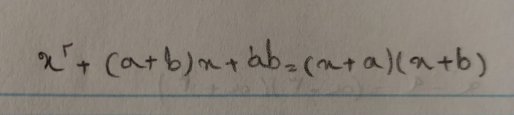 x² + (a+b)x + ab = (x+a)(x+b)